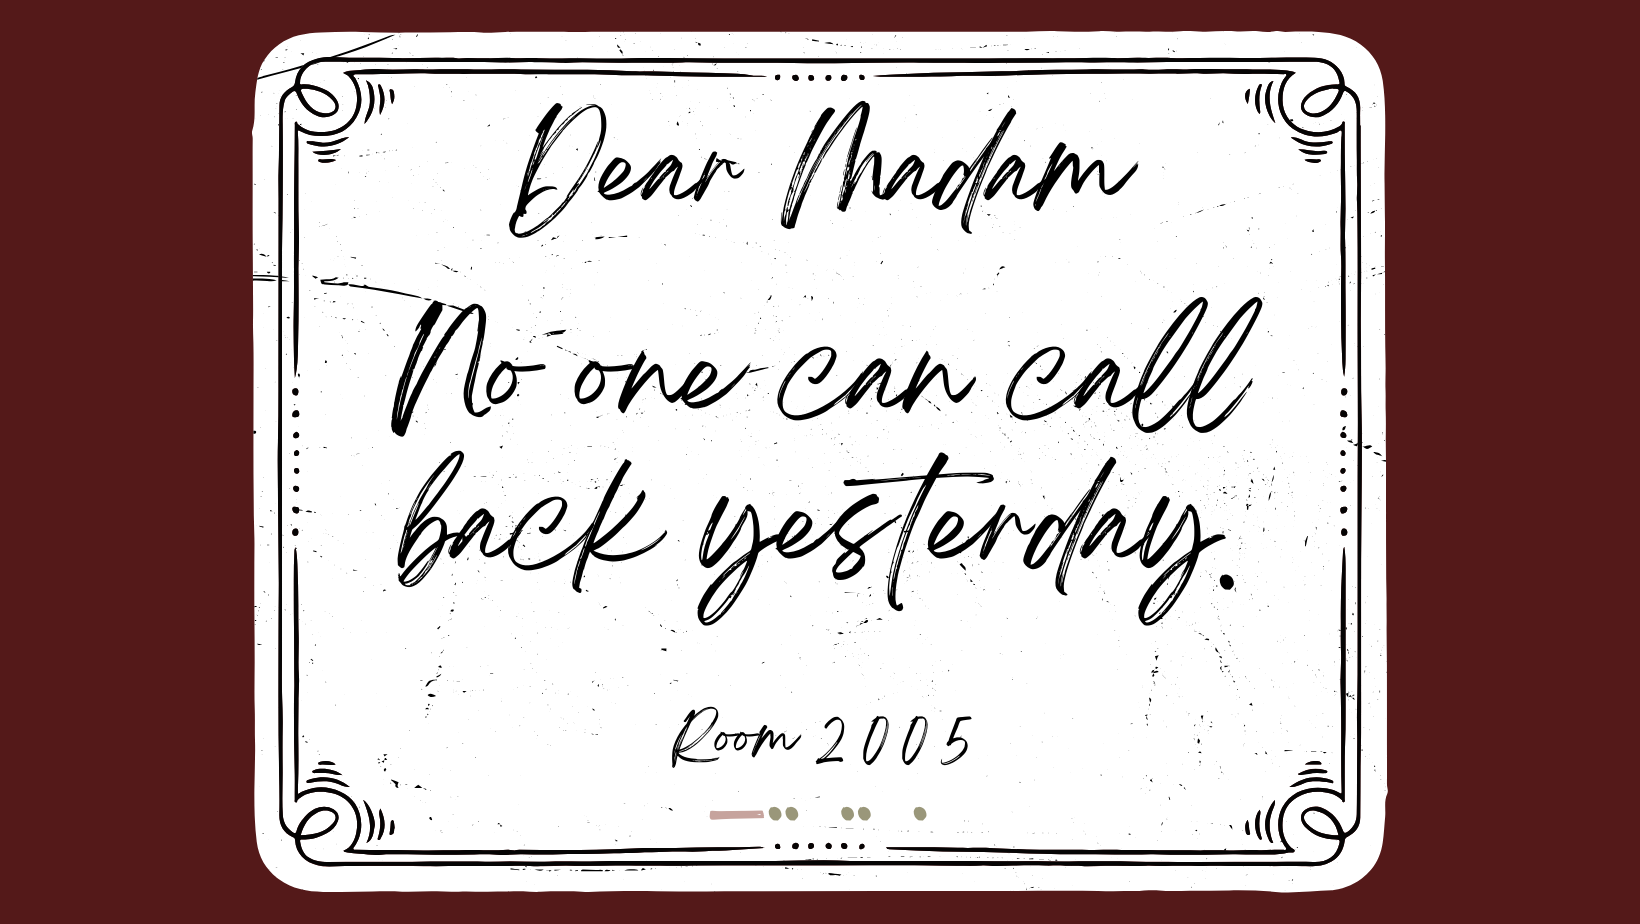 Dear Madam
No one can call
back yesterday.
Room 2005